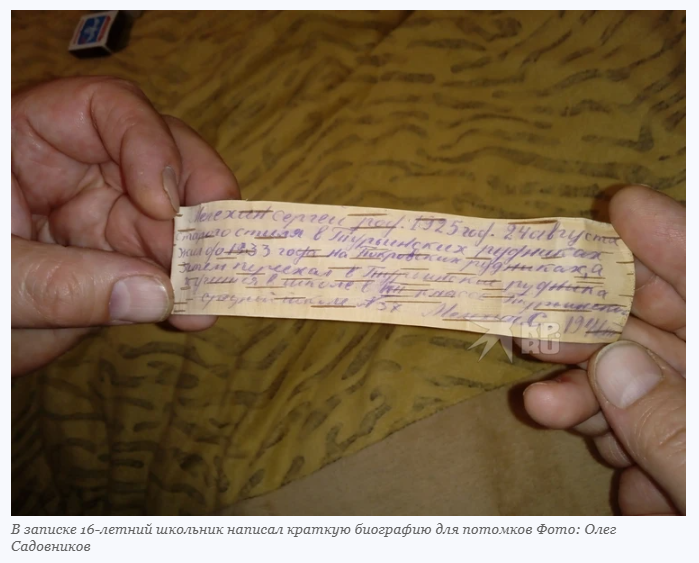 Мелехин Сергей род. 1925 год. 24 августа
старого стиля в Турьинских рудниках
Жил до 1933 года на Покровских рудниках, а
Затем переехал в Турьинские рудника
Учится в школе в классе Турьинской
средней школе № 37 С. 1941
KP.RU
В записке 16-летний школьник написал краткую биографию для потомков Фото: Олег
Садовников